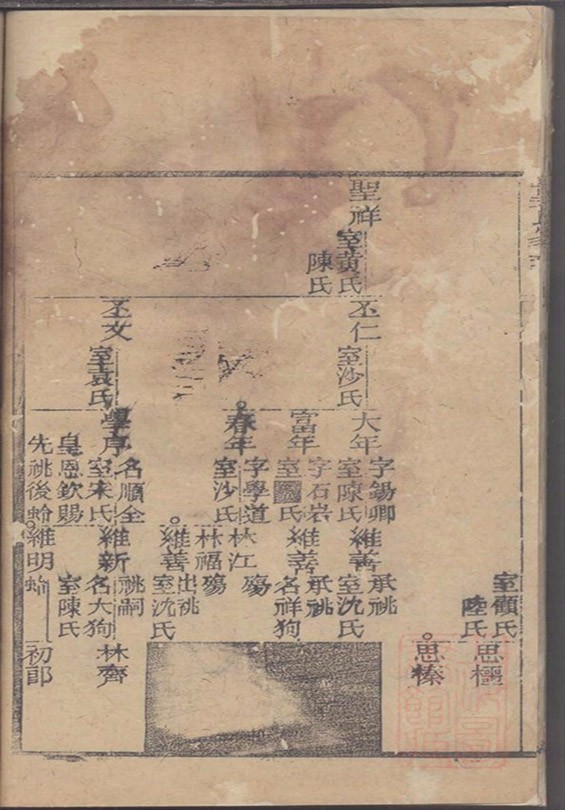 室顧氏
陸氏
思榛
聖祥
室黃氏
陳氏
丕仁
室沙氏
大年
字錫卿
室陳氏
維善
承祧
室沈氏
富年
字石岩
室
氏
維善
承祧
名祥狗
春年
字學道
室沙氏
林江
殤
林福
殤
維善
出祧
室沈氏
丕文
室袁氏
學序
名順全
室宋氏
皇恩欽賜
先祧後蛉
維新
祧嗣
名大狗
室陳氏
林齊
維明
初郎